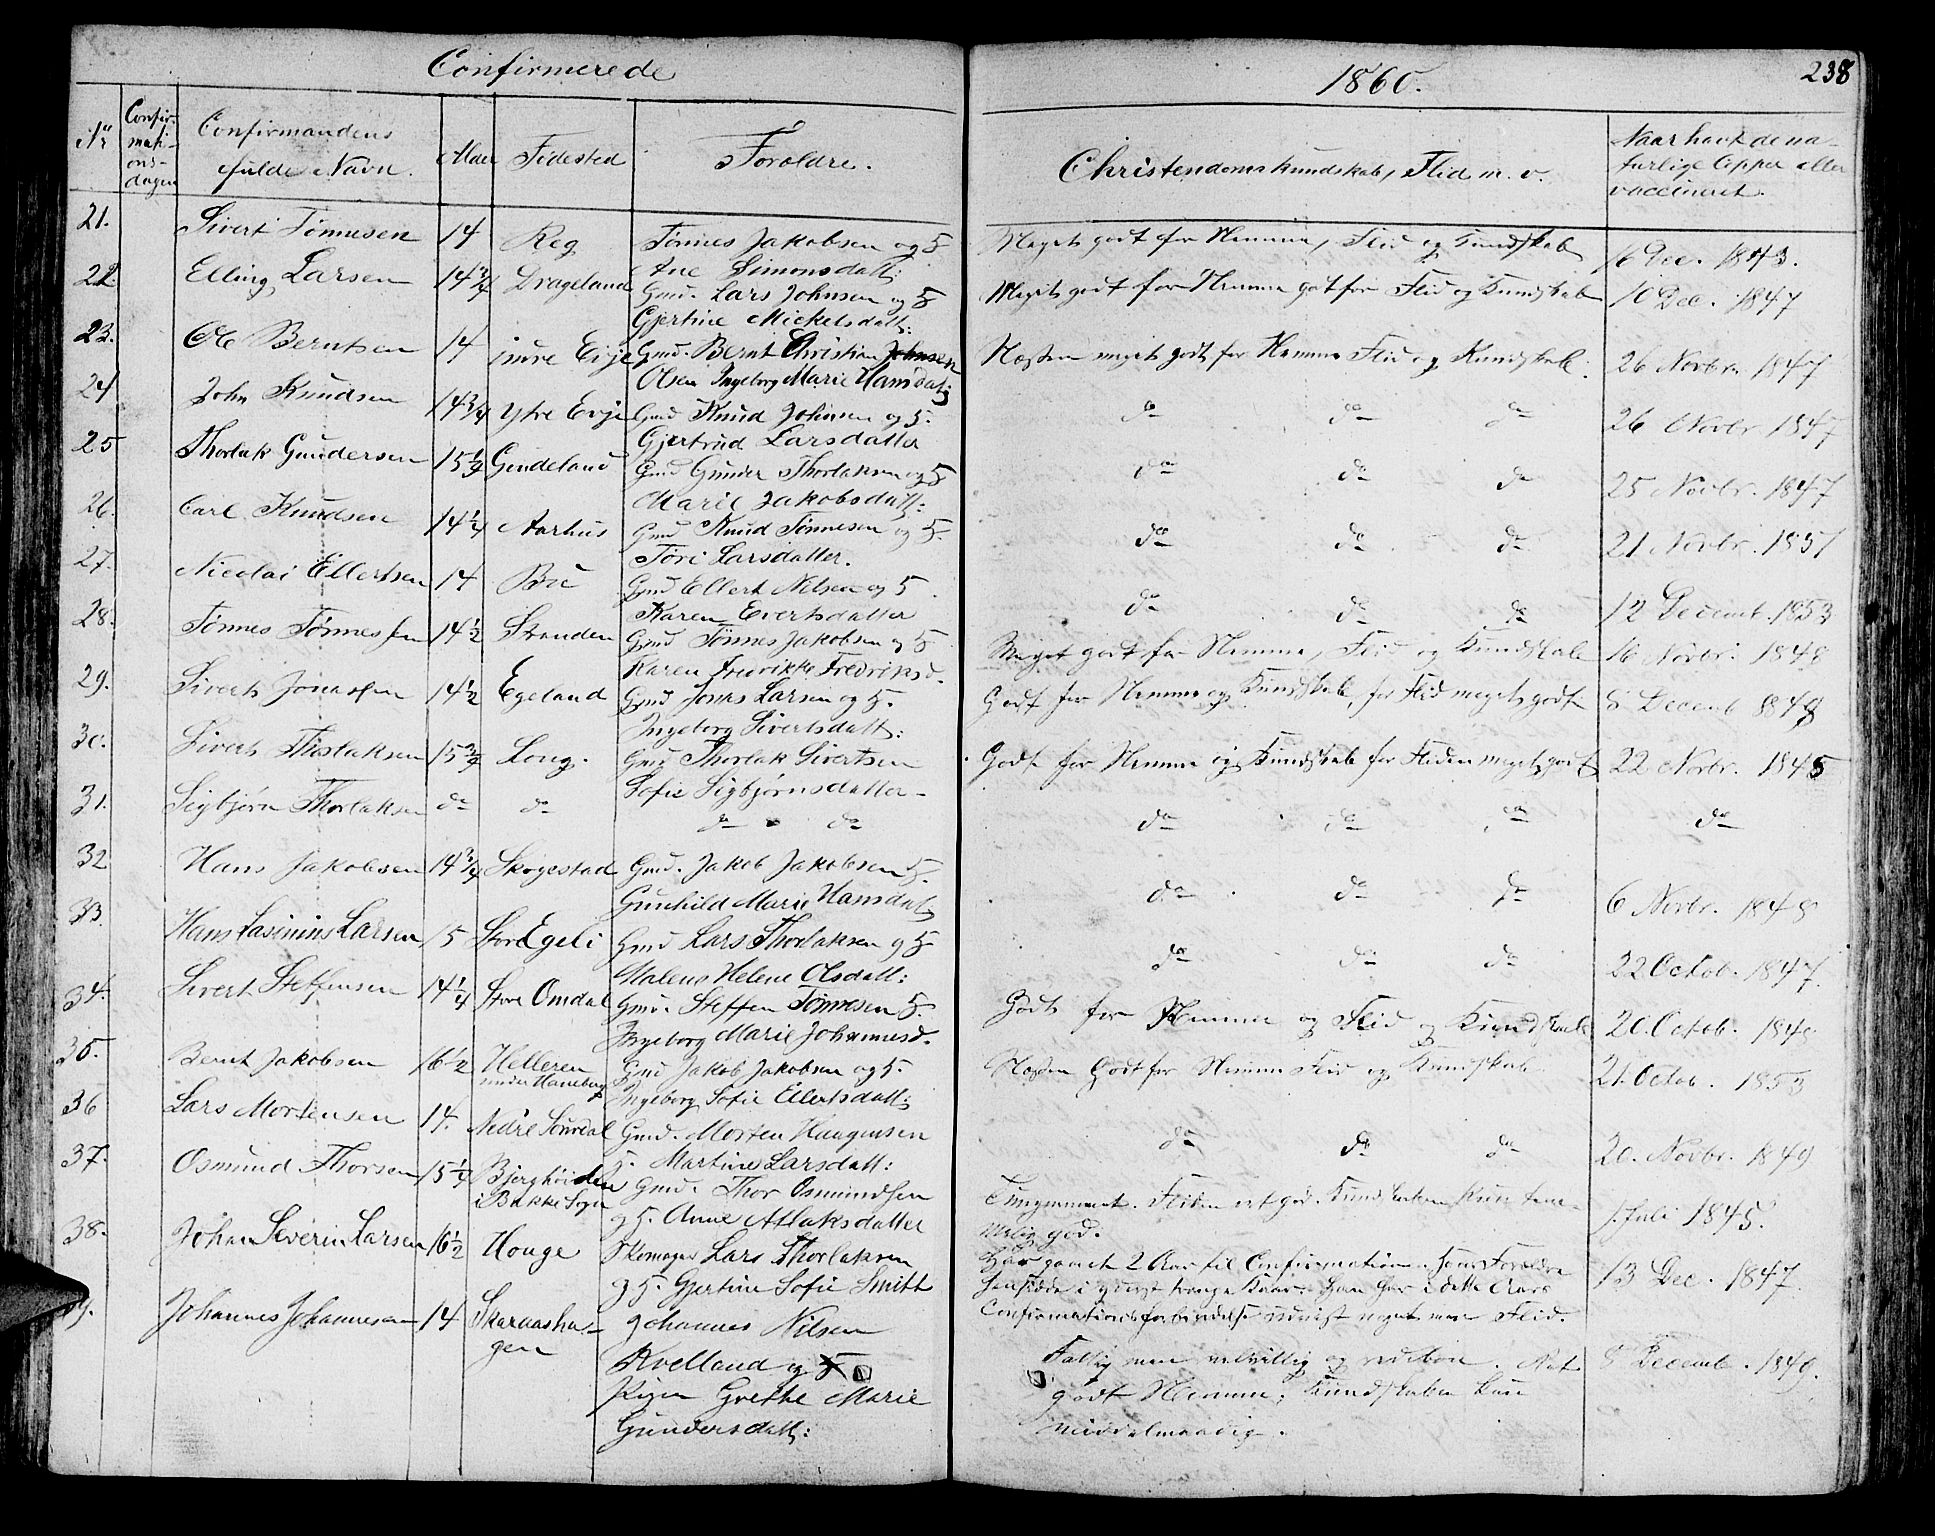 Confirmerede
1860.
238
Nr
Confir-
mati-
ons-
dagen
Confirmandens
fulde Navn.
Alder
Fødested
Forældre.
Christendomskundskab, Flid m. v.
Naar havt de na-
turlige Copper eller
vaccineret
21. Sivert Tønnesen 14 Reg Tønnes Jakobsen og H Meget godt for Nemme, Flid og Kundskab 16 Dec. 1843.
Ane Simonsdatt:
22. Elling Larsen 14 3/4 Drageland Gmd. Lars Johnsen og H Meget godt for Nemme godt for Flid og Kundskab 10 Dec. 1847
Gjertine Mickelsdatt:
23. Ole Berntsen 14 indre Eije Gmd. Bernt Christian Johnsen Næsten meget godt for Nemme Flid og Kundskab. 26 Novbr. 1847
Olsen Ingeborg Marie Hansdat;
24 John Knudsen 14 3/4 Ytre Evje Gmd Knud Johnsen og H. do do do 26 Novbr. 1847
Gjertrud Larsdatter
25 Thorlak Gundersen 15 1/2 Gindeland Gmd Gunder Thorlaksen og H do do do 25 Novbr. 1847
Marie Jakobsdatt:
26. Carl Knudsen 14 1/4 Aarhus Gmd Knud Tønnesen og H. do do do 21 Novbr. 1857
Tøri Larsdatter.
27. Nicolai Ellertsen 14 Bu Gmd Ellert Nilsen og H do do do 12 Decemb. 1853
Karen Evertsdatter
28. Tønnes Tønnessen 14 1/2 Stranden Gmd Tønnes Jakobsen og H Meget godt for Nemme, Flid og Kundskab 16 Novbr. 1848
Karen Fredrikke Fredriksd.
29. Siverts Jonassen 14 1/2 Egeland Gmd Jonas Larsen og H. Godt for Nemme og Kundskab, for Flid meget godt 8 Decemb 1848
Ingeborg Sivertsdatt:
30. Siverts Thorlaksen 15 3/4 Long. Gmd Thorlak Sivertsen Godt for Nemme og Kundskab for Fliden meget godt 22 Novbr. 1845
Sofie Sigbjørnsdatter
31. Sigbjørn Thorlaksen do do do do do do do do
32 Hans Jakobsen 14 3/4 Skogestad Gmd. Jakob Jakobsen H. do do do 6 Novbr. 1848
Gunhild Marie Hansdat;
33. Hans Larsen 15 Store Egeli Gmd Lars Thorlaksen og H do do do 22 Octob. 1847.
Malene Helene Olsdatt:
34. Sivert Steffensen 14 1/4 Store Omdal Gmd. Steffen Tønnesen H. Godt for Nemme og Flid og Kundskab 20. Octob. 1848
Ingeborg Marie Johannesd.
35. Bernt Jakobsen 16 1/2 Helleren Gmd Jakob Jakobsen og H. Næsten Godt for Nemme Flid og Kundskab 21. Octob. 1853
under Haneberg Ingeborg Sofie Ellertsdatt;
36 Lars Mortensen 14. Nedre Sourdal Gmd. Morten Haagensen do do do 20. Novbr. 1849
H. Martine Larsdatt:
37. Osmund Thorsen 15 1/4 Bjerghoiden Gmd. Thor Osmundsen Fliden god. Kundskaben kun tem- 1. Juli 1845.
i Bakke Sogn og H. Anne Atlaksdatter melig god.
38. Johan Severin Larsen 16 1/2 Houge Skomager Lars Thorlaksen Har gaaet 2 Aar til Confirmation. Hans Forældre 13 Dec. 1847.
og H. Gjertine Sofie Smith i yderst trange Kaar. Han har i dette Aars
Confirmationsforberedelse udvist noget mere Flid.
39. Johannes Johannesen 14 Skaraasha- Johannes Nilsen Fattig men velvillig og 8 Decemb. 1849.
gen Kvelland og H godt Nemme; Kundskaben kun
Pigen Grethe Marie middelmaadig.
Gundersdatt: